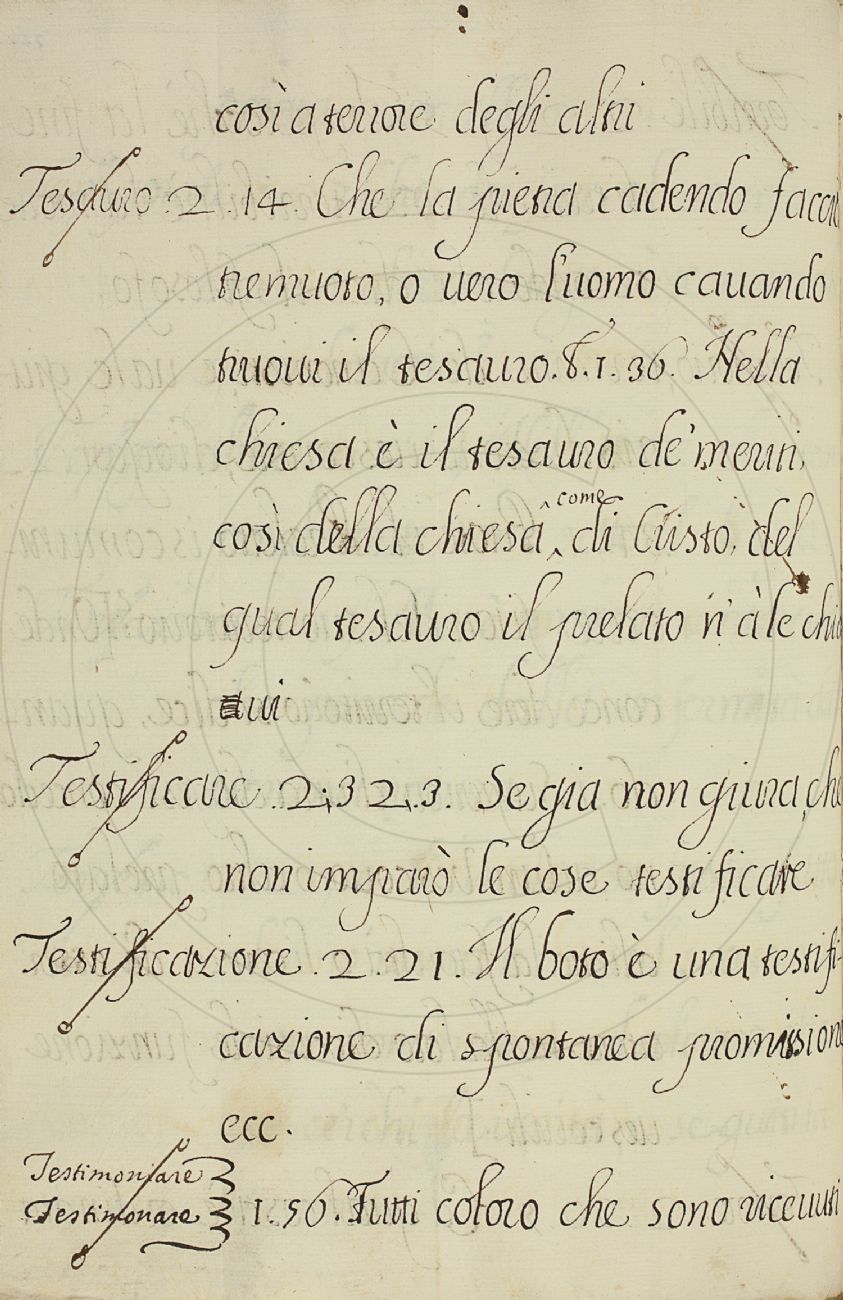 così a tenore degli altri
Tesauro. 2. 14. Che la pietra cadendo facci
tremuoto, o uero l'uomo cauando
truoui il tesauro. &. 1. 36. Nella
chiesa è il tesauro de' meriti,
così della chiesa ^come^ di Cristo, del
qual tesauro il prelato n'à le chia
ui
Testificare. 2. 32. 3. Se gia non giura, che
non imparò le cose testificate
Testificazione. 2. 21. Il boto è una testifi-
cazione di spontanea promissione
ecc.
Testimoniare
Testimonare } 1. 56. Tutti coloro che sono riceuuti